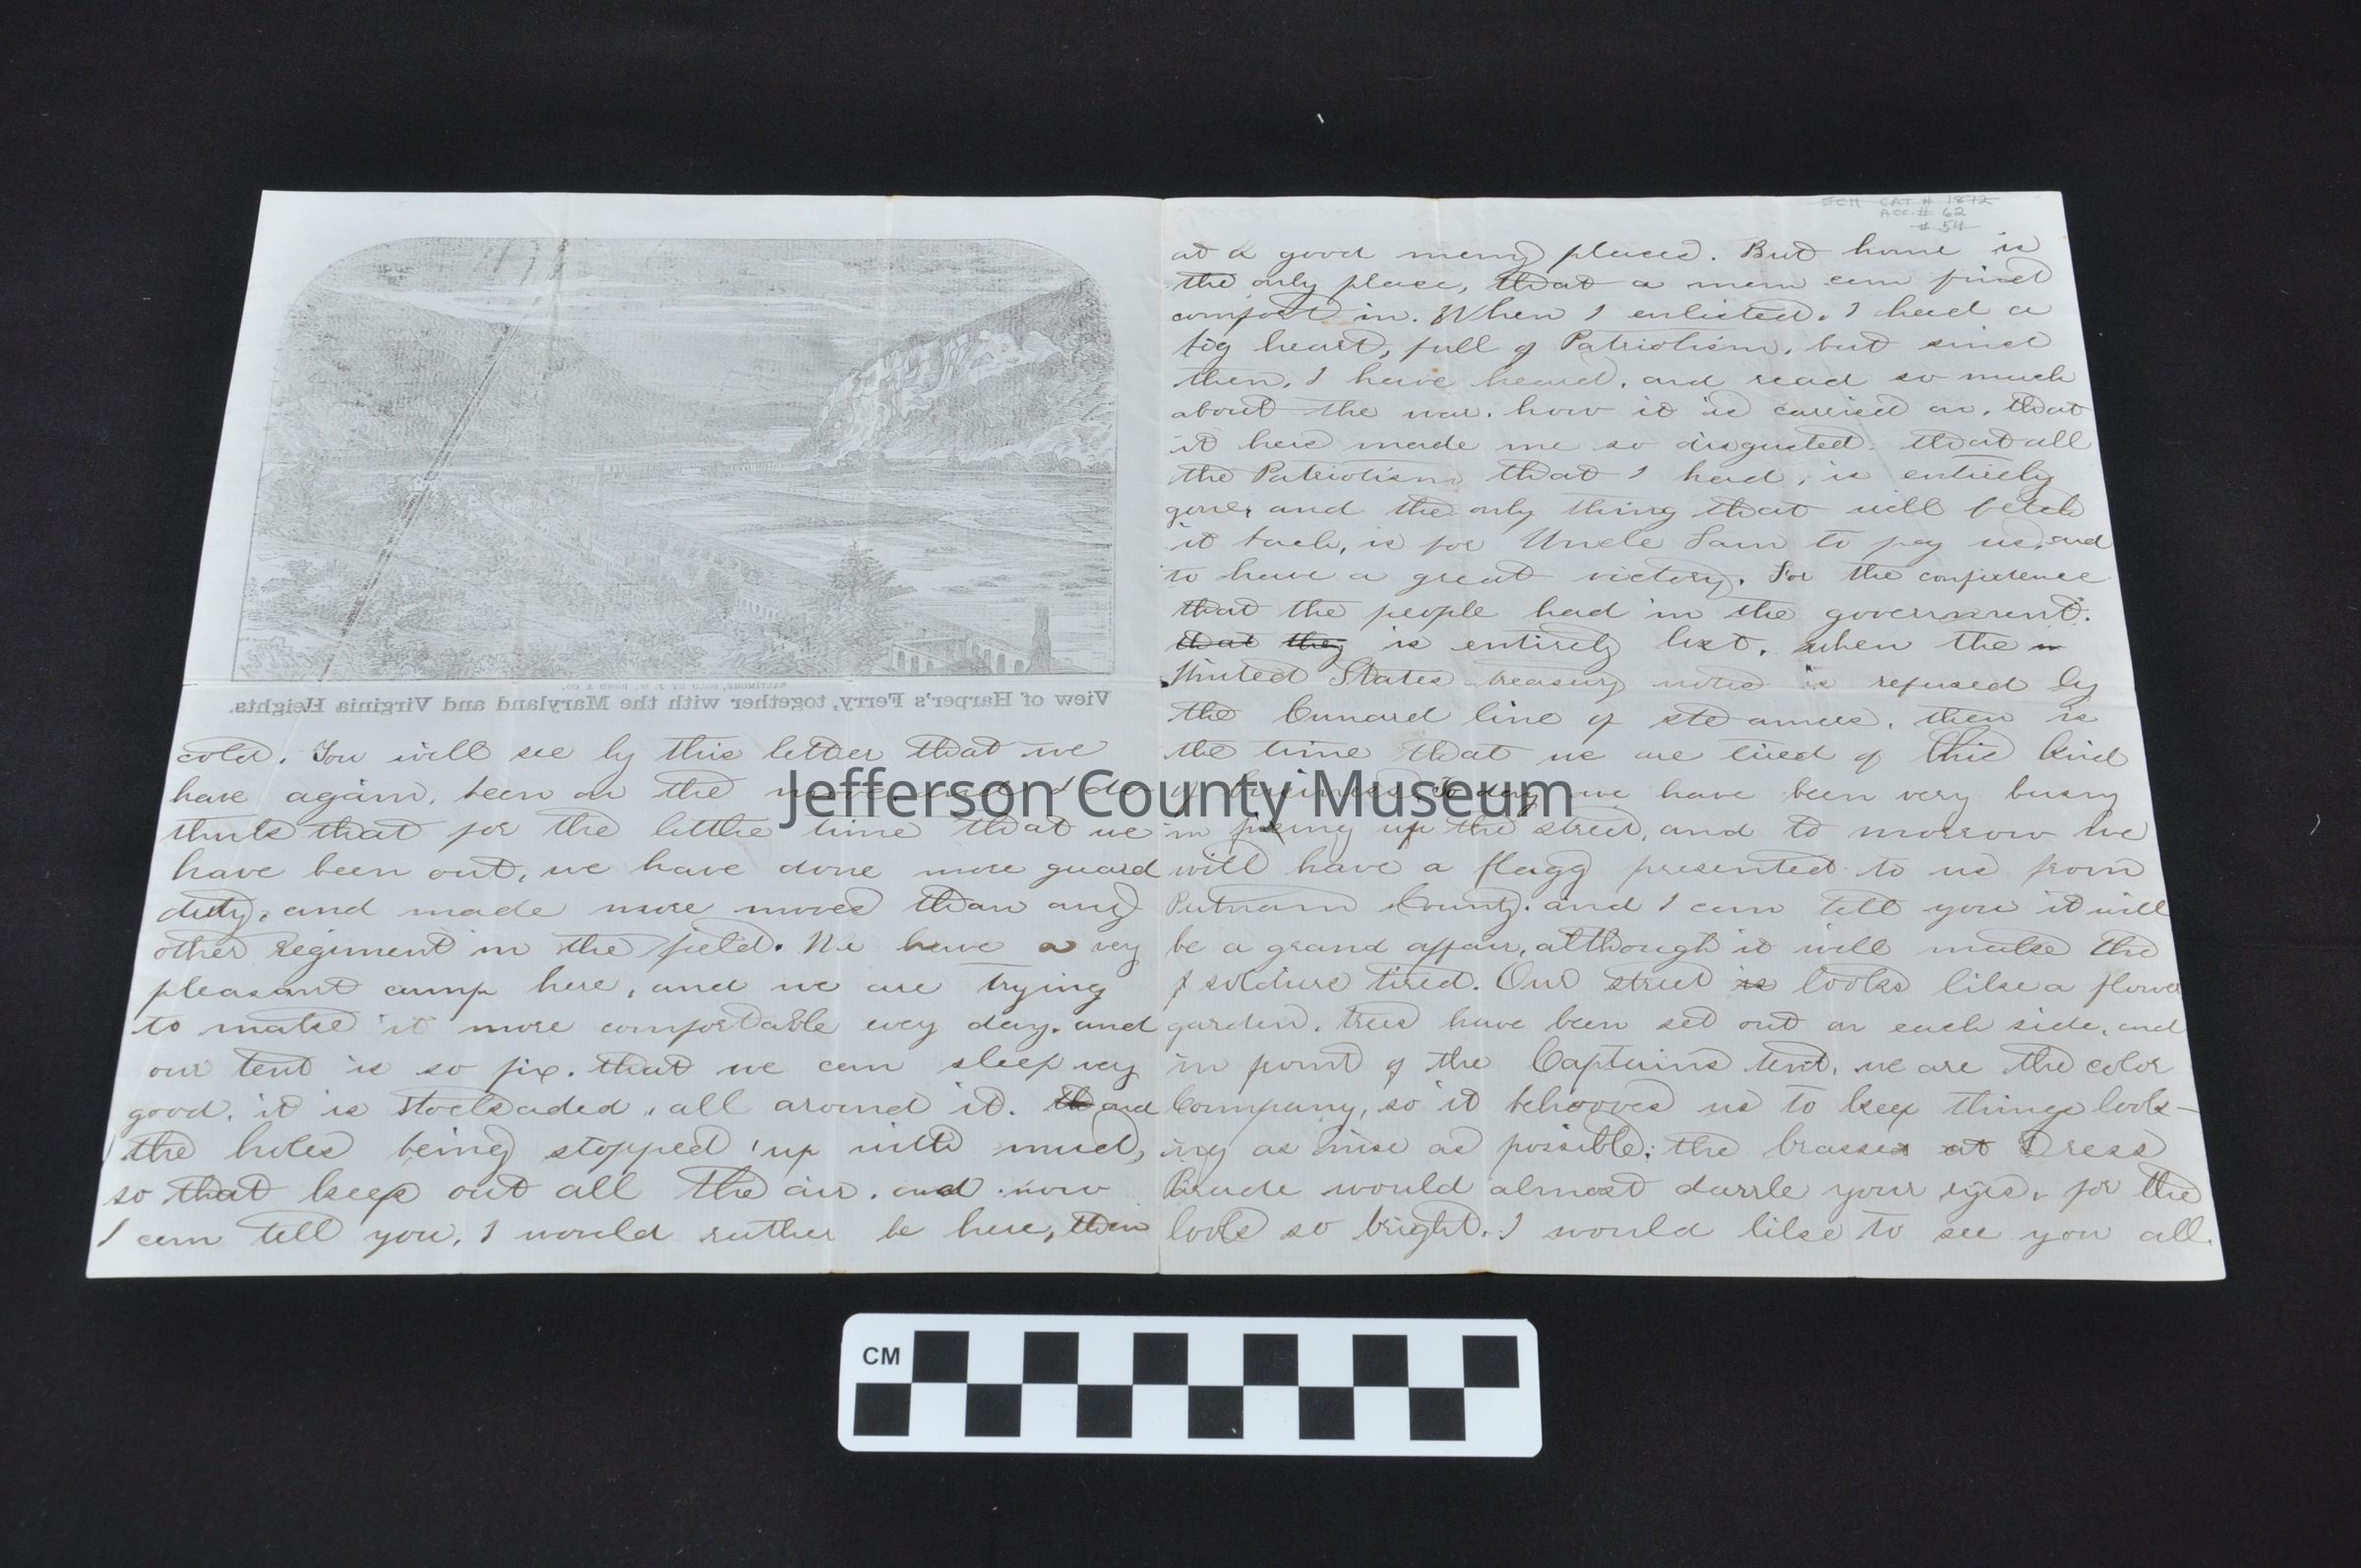 BALTIMORE, SOLD BY J. W. BOND & CO.
View of Harper's Ferry, together with the Maryland and Virginia Heights.
cold. You will see by this letter that we
have again, been on the move and I do
think that for the little time that we
have been out, we have done more guard
duty, and made more moves than any
other regiment in the field. We have a very
pleasant camp here, and we are trying
to make it more comfortable evey day. and
our tent is so fix. that we can sleep very
good. it is stocksaded, all around it. and
the holes being stopped up with mud,
so that keep out all the air. and now
I can tell you, I would ruther be here, then
JCH CAT # 1872
ACC # 62
# 54
at a good meny places. But home is
the only place, that a man can find
comfort in. When I enlisted. I had a
big heart, full of Patriotism. but since
then, I have heard, and read so much
about the war. how it is carried on, that
it has made me so disgusted. that all
the Patriotism that I had, is entirely
gone, and the only thing that will fetch
it back, is for Uncle Sam to pay us, and
to have a great victory. For the confidence
that the people had in the government.
that they is entirely lost, when the
United States treasury notes is refused by
the Cunard line of steamers. then is
the time that we are tired of this kind
of business. To day we have been very busy
in fixing up the street, and to morrow we
will have a flagg presented to us from
Putnam County. and I can tell you it will
be a grand affair, although it will make the
soldiers tired. Our street is looks like a flower
garden. trees have been set out on each side, and
in front of the Captains tent. we are the color
Company, so it behooves us to keep things look-
ing as nise as possible; the brasses at Dress
Parade would almost dazzle your eyes, for the
look so bright. I would like to see you all.
Jefferson County Museum
CM